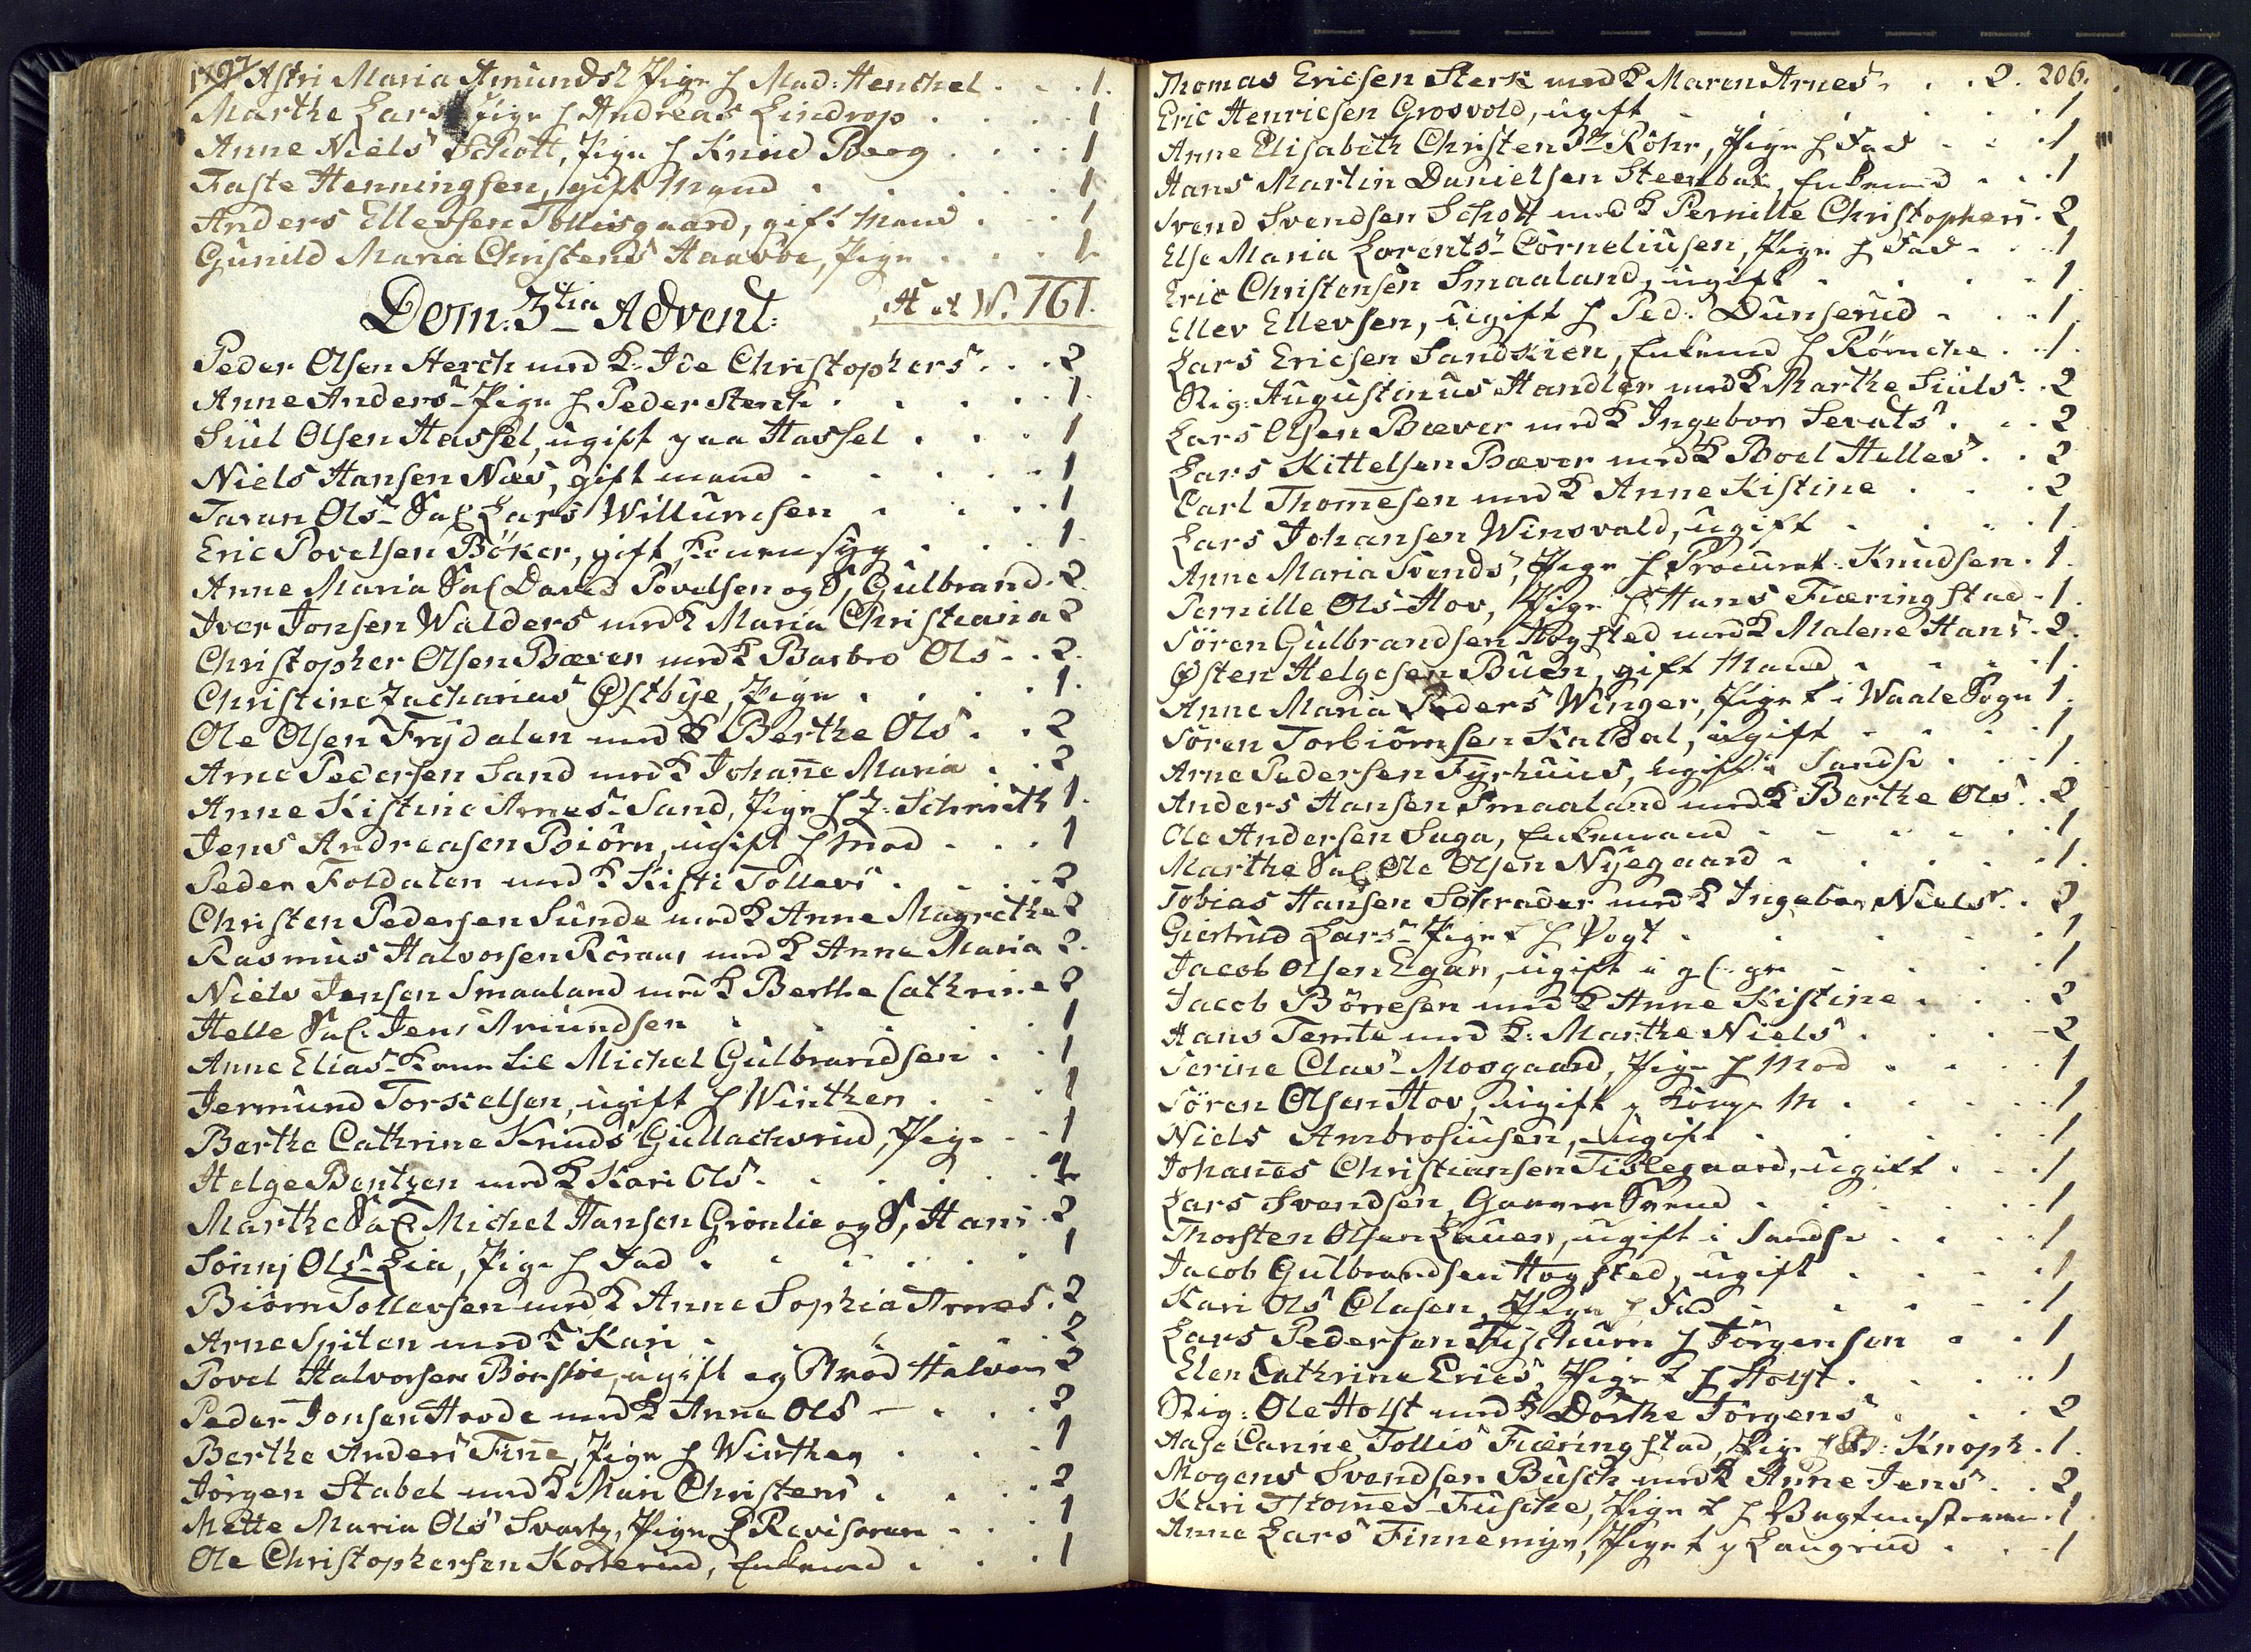 1797 Astri Maria Amundsr Pige h Mad: Henchel . . . 1.
Marthe Lars Pige h Andreas Lindrop . . . . 1
Anne Niels Schott, Pige h Knud Berg . . . . 1
Faste Henningsen, gift Mand . . . . 1
Anders Ellevsen Tollisgaard, gift Mand . . . 1
Gunild Maria Christens Haavoe, Pige . . . 1
Dom. 3tia Advent: H et W. 161.
Peder Olsen Sterch med K: Ide Christophers . . . 2
Anne Anders Pige h Peder Sterch . . . . 1.
Siul Olsen Hassel, ugift paa Hassel . . . 1
Niels Hansen Næs, gift mand . . . . 1
Taran Ols Sal Lars Willumsen . . . . 1
Eric Povelsen Bøker, gift, Konen syg . . . 1
Anne Maria Sal David Povelsen og S, Gulbrand . 2
Iver Jonsen Walders med K Maria Christiana 2
Christopher Olsen Bæver med K Barbro Ols . . 2.
Christine Zacharias Østbye, Pige . . . . 1.
Ole Olsen Frydalen med K Berthe Ols . . 2
Arne Pedersen Sand med K Johanne Maria . . 2
Anne Kistine Arnes Sand, Pige h Z: Schmidt 1.
Jens Andreasen Biørn, ugift h Mod . . . 1
Peder Foldalen med K Kisti Tollevs . . . . 2
Christen Pedersen Sunde med K Anne Magrethe 2
Rasmus Halvorsen Røraas med K Anne Maria 2.
Niels Jensen Smaaland med K Berthe Cathrine 2
Helle Sal. Jens Amundsen . . . . 1
Anne Elias Kone til Michel Gulbrandsen . . 1
Jermund Torskelsen, ugift h Winther . . . 1
Berthe Cathrine Knuds Gullachsrud, Pige . . 1
Helge Bentzen med K Kari Ols . . . . 2
Marthe Sal Michel Hansen Grønlie og S, Hans . 2
Sønnj Ols Lia, Pige h Fad . . . . 1
Biørn Tollevsen med K Anne Sophia Arnes . 2
Arne Spiten med K Kari . . . . 2
Povel Halvorsen Børstøe, ugift og Brod Halvor 2
Peder Jonsen Hrode med K Anne Ols . . . 2
Berthe Anders Finne, Pige h Winther . . . 1
Jørgen Stabel med K Mari Christens . . . 2
Mette Maria Ols Svartz, Pige h Revisoren . . . 1
Ole Christophersen Korterud, Enkemand . . . 1
Thomas Ericsen Sterk med K Maren Arnes . . . 2. 206.
Eric Henricsen Grosvold, ugift . . . . 1
Anne Elisabeth Christensdr Røhr, Pige h Fad . . . 1
Hans Martin Danielsen Steenbak, Enkemand . . . 1
Svend Svendsen Schott med K Pernille Christophers . 2
Else Maria Lorents Corneliusen, Pige h Fad . . . 1
Eric Christensen Smaaland, ugift . . . . 1
Ellev Ellevsen, ugift h Ped: Dunserud . . . 1
Lars Ericsen Sandskien, Enkemd h Rømche . . 1.
Sig: Augustinus Handler med K Marthe Siuls . . 2
Lars Olsen Bæver med K Ingebor Sevats . . . 2
Lars Kittelsen Bæver med K Boel Helles . . 2
Carl Thomesen med K Anne Kistine . . . 2
Lars Johansen Winsvald, ugift . . . . 1.
Anne Maria Svends, Pige h Procurat: Knudsen . 1.
Pernille Ols Hov, Pige h Hans Fiæringstad . 1.
Søren Gulbrandsen Høgsted med K Malene Hans . 2.
Østen Helgesen Buen, gift Mand . . . . 1.
Anne Maria Peders Winger, Pige t i Waale Sogn 1.
Søren Torbiørnsen Kaldal, ugift . . . . 1
Arne Pedersen Fyrhuus, ugift i Sandse . . . 1.
Anders Hansen Smaaland med K Berthe Ols . . 2
Ole Andersen Saga, Enkemand . . . . 1
Marthe Sal Ole Olsen Nyegaard . . . . 1.
Tobias Hansen Schrader med K Ingebor Niels . . 2
Giertrud Lars Pige t h Vogt . . . . 1
Jacob Olsen Egar, ugift . . . . 1
Jacob Børresen med K Anne Kistine . . . 2
Hans Temte med K: Marthe Niels . . . 2
Serine Clas Mosgaard, Pige h Mod . . . 1
Søren Olsen Hov, ugift p Kongs M . . . . 1
Niels Ambrosiusen, ugift . . . . 1
Johannes Christiansen Tislegaard, ugift . . . 1
Lars Svendsen, Garver Svend . . . . 1
Thorsten Olsen Lauer, ugift i Sandse . . . 1
Jacob Gulbrandsen Høgsted, ugift . . . . 1
Kari Ols Olasen, Pige h Fad . . . . 1
Lars Pedersen Fuschum h Jørgensen . . 1
Elen Cathrine Erics, Pige t h Holst . . . . 1
Sig: Ole Holst med K Dorthe Jørgens . . . 2
Aase Carine Tollis Fiæringstad, Pige h Sr: Knoph . 1.
Mogens Svendsen Busch med K Anne Jens . . 2
Kari Thomes Fusche, Pige t h Vagtmesteren . 1
Anne Lars Finnemyr, Pige t p Laugrud . . . 1